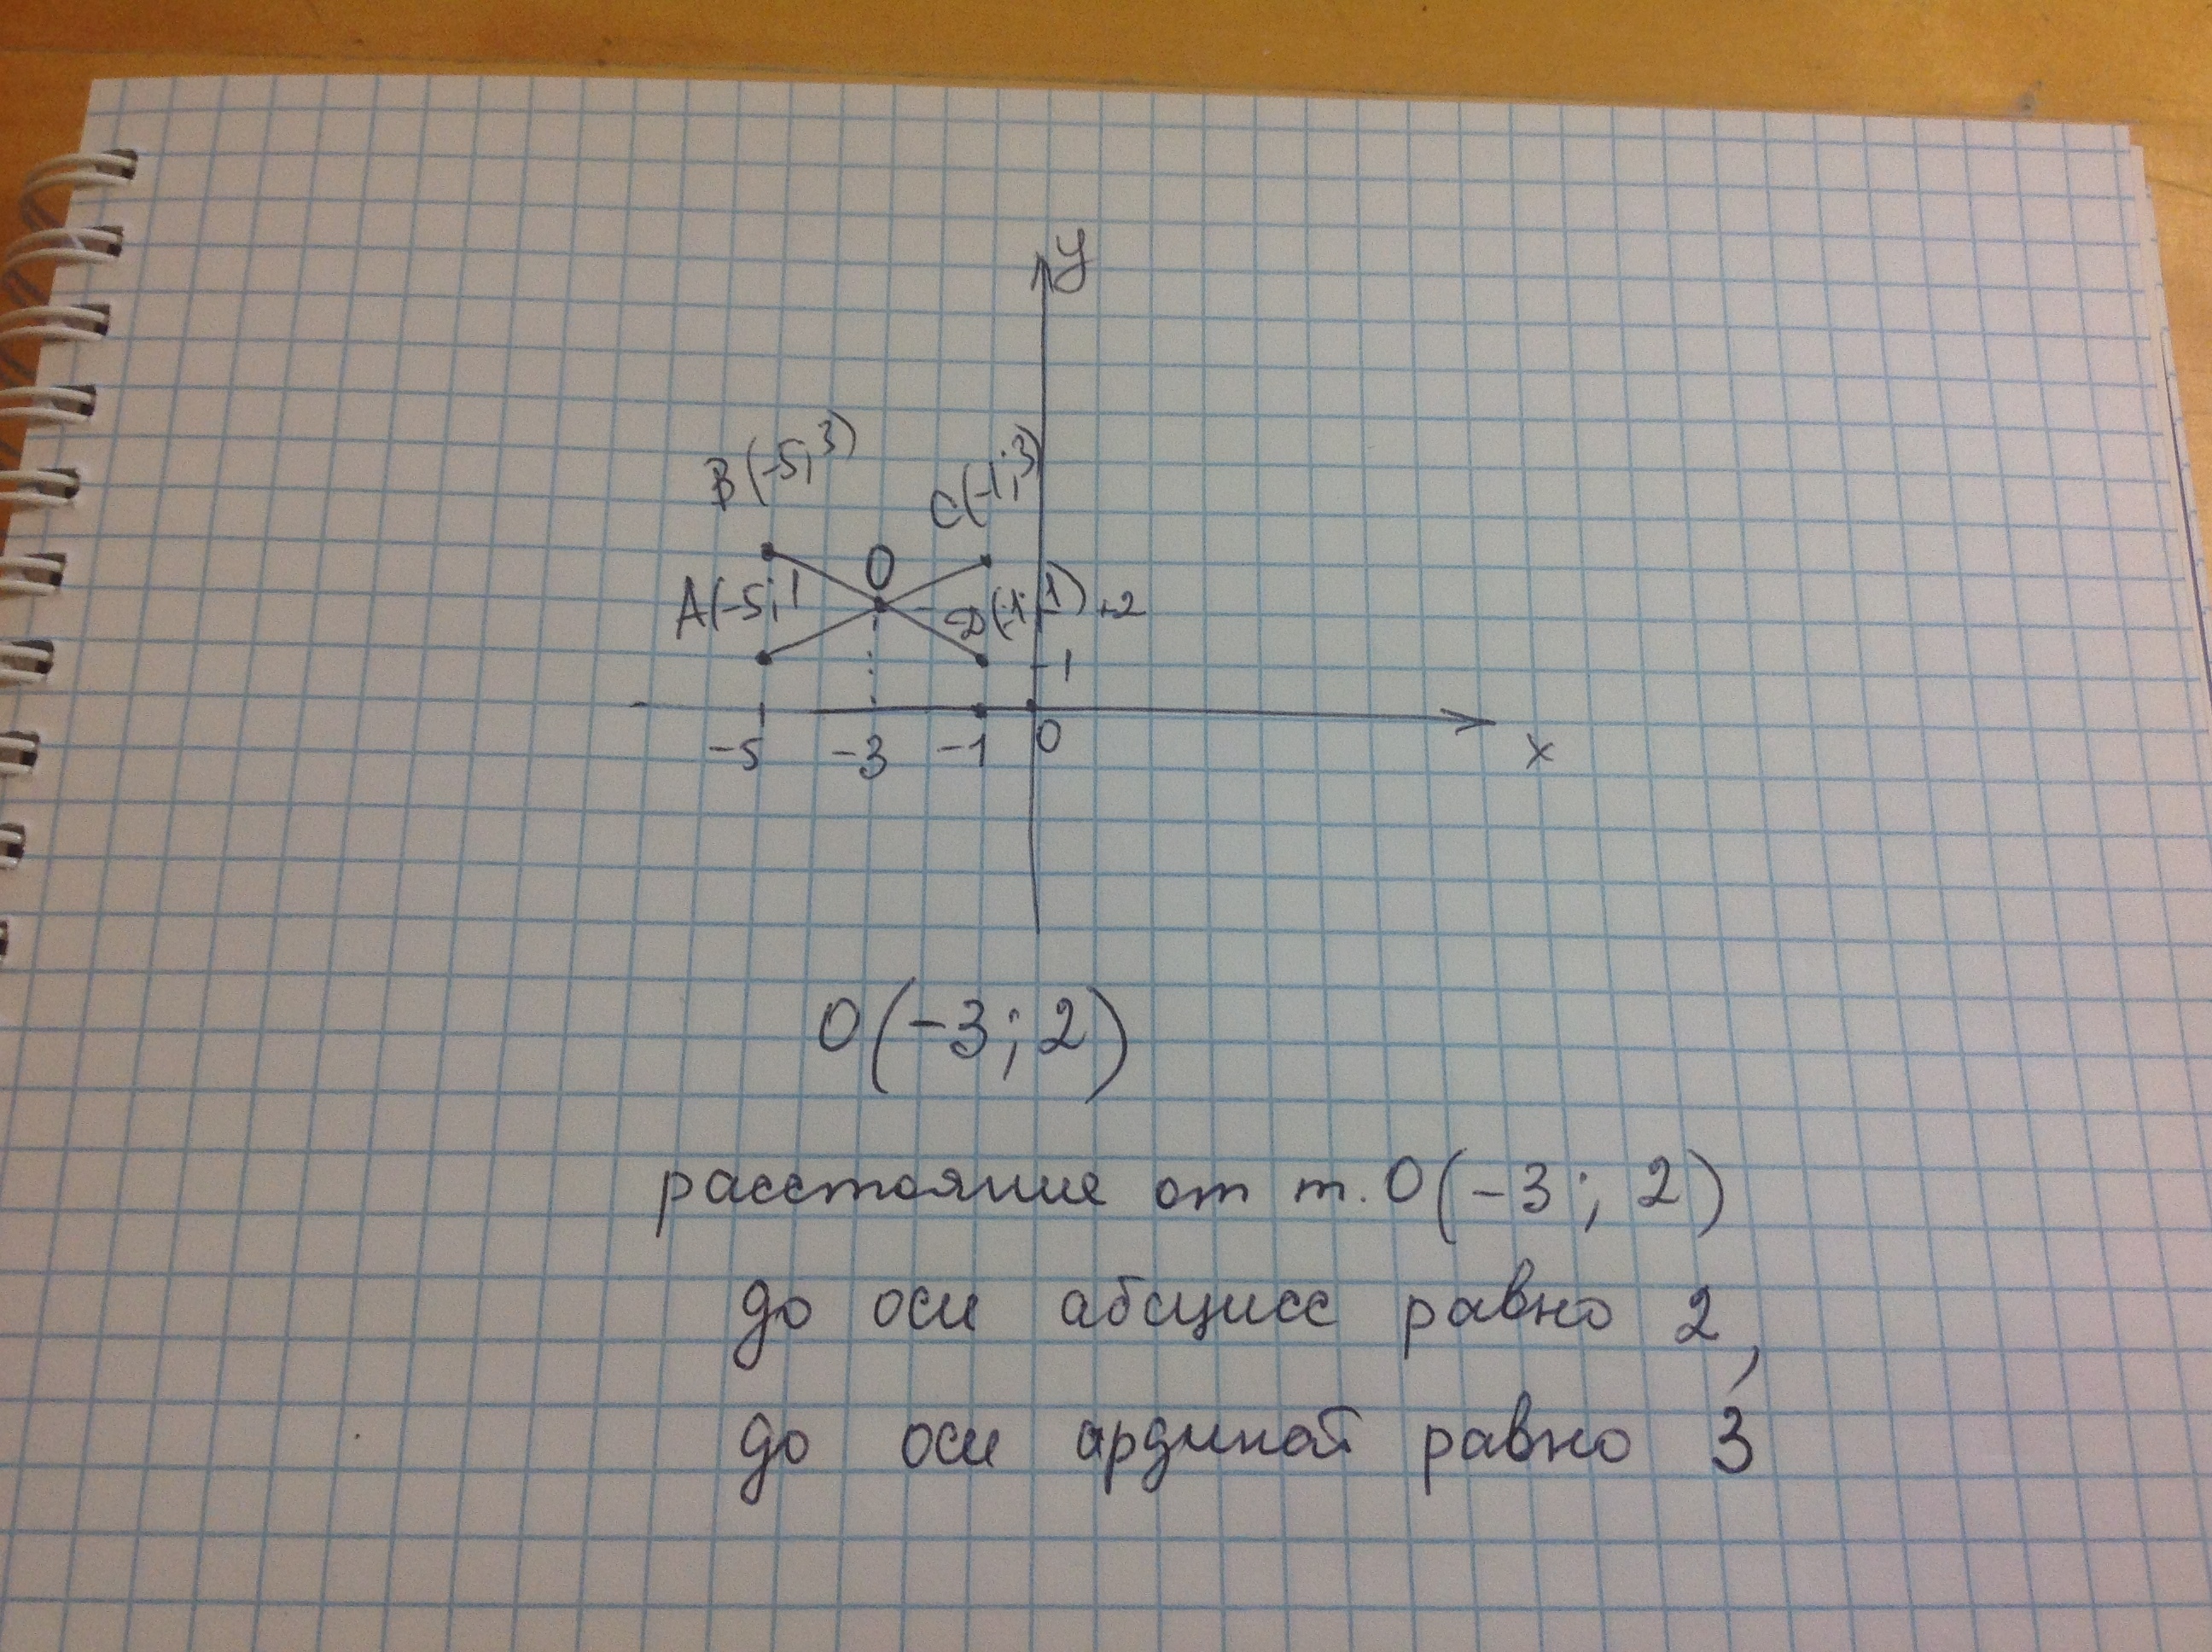 у
B(-5; 3)
C(-1; 3)
O
A(-5; 1
D(-1; 1)
-2
-1
-5 -3 -1 0
x
O(-3; 2)
расстояние от т. O(-3; 2)
до оси абсцисс равно 2,
до оси ординат равно 3